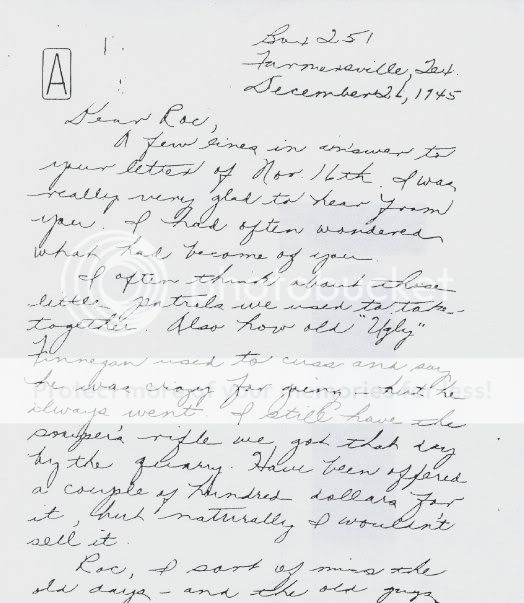 A
Box 251
Farmersville, Tex.
December 26, 1945
Dear Roc,
A few lines in answer to
your letter of Nov. 16th. I was
really very glad to hear from
you. I had often wondered
what had become of you.
I often think about those
little patrols we used to take
together. Also how old "Ugly"
Finnegan used to cuss and say
he was crazy for going - but he
always went. I still have the
sniper's rifle we got that day
by the quarry. Have been offered
a couple of hundred dollars for
it, but naturally I wouldn't
sell it.
Roc, I sort of miss the
old days - and the old guys
photobucket
Protect more of your memories for less!